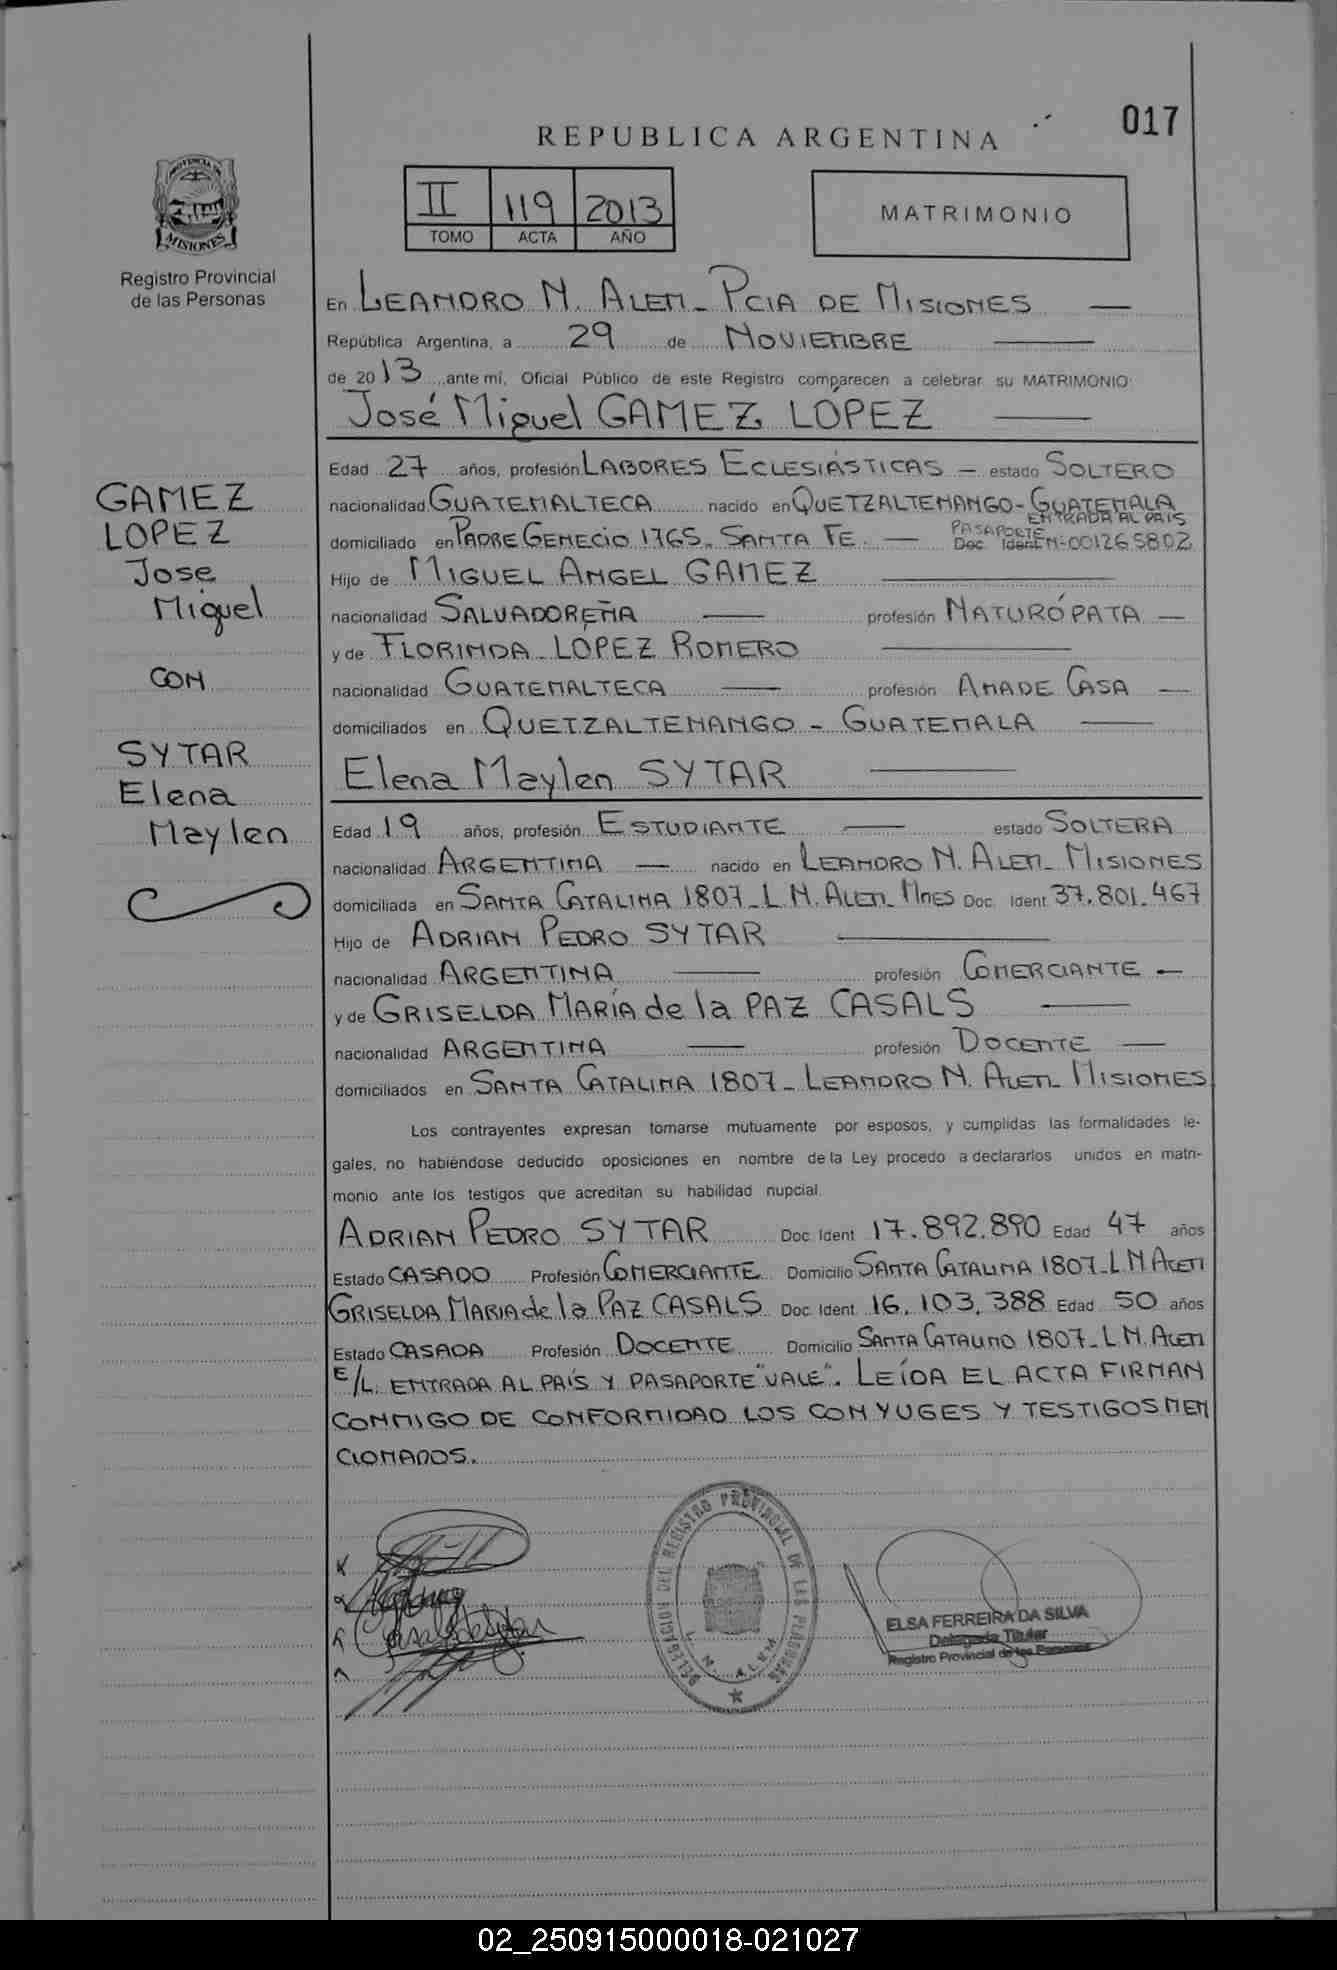 017
REPUBLICA ARGENTINA
PROVINCIA DE
MISIONES
Registro Provincial
de las Personas
II 119 2013
TOMO ACTA AÑO
MATRIMONIO
En LEANDRO N. ALEM - PCIA DE MISIONES
República Argentina, a 29 de NOVIEMBRE
de 2013 ante mí, Oficial Público de este Registro comparecen a celebrar su MATRIMONIO
José Miguel GAMEZ LÓPEZ
GAMEZ
LOPEZ
Jose
Miguel
CON
SYTAR
Elena
Maylen
Edad 27 años, profesión LABORES ECLESIÁSTICAS - estado SOLTERO
nacionalidad GUATEMALTECA nacido en QUETZALTENANGO - GUATEMALA
ENTRADA AL PAIS
domiciliado en PADRE GENECIO 1765. SANTA FE. PASAPORTE Doc. Ident N-001265802
Hijo de MIGUEL ANGEL GAMEZ
nacionalidad SALVADOREÑA profesión NATURÓPATA
y de FLORINDA LÓPEZ ROMERO
nacionalidad GUATEMALTECA profesión AMA DE CASA
domiciliados en QUETZALTENANGO - GUATEMALA
Elena Maylen SYTAR
Edad 19 años, profesión ESTUDIANTE estado SOLTERA
nacionalidad ARGENTINA nacido en LEANDRO N. ALEM - MISIONES
domiciliada en SANTA CATALINA 1807 - L.N. ALEM - Mnes Doc. Ident. 37.801.467
Hijo de ADRIAN PEDRO SYTAR
nacionalidad ARGENTINA profesión COMERCIANTE
y de GRISELDA MARÍA de la PAZ CASALS
nacionalidad ARGENTINA profesión DOCENTE
domiciliados en SANTA CATALINA 1807 - LEANDRO N. ALEM MISIONES
Los contrayentes expresan tomarse mutuamente por esposos, y cumplidas las formalidades le-
gales, no habiéndose deducido oposiciones en nombre de la Ley procedo a declararlos unidos en matri-
monio ante los testigos que acreditan su habilidad nupcial.
ADRIAN PEDRO SYTAR Doc. Ident 17.892.890 Edad 47 años
Estado CASADO Profesión COMERCIANTE Domicilio SANTA CATALINA 1807 - L N ALEM
GRISELDA MARIA de la PAZ CASALS Doc. Ident. 16.103.388 Edad 50 años
Estado CASADA Profesión DOCENTE Domicilio SANTA CATALINA 1807 - L.N. ALEM
E/L. ENTRADA AL PAÍS Y PASAPORTE "VALE". LEÍDA EL ACTA FIRMAN
CONMIGO DE CONFORMIDAD LOS CONYUGES Y TESTIGOS MEN
CIONADOS.
DELEGACION DEL REGISTRO PROVINCIAL DE LAS PERSONAS
L. N. ALEM
ELSA FERREIRA DA SILVA
Delegada Titular
Registro Provincial de las Personas
02_250915000018-021027